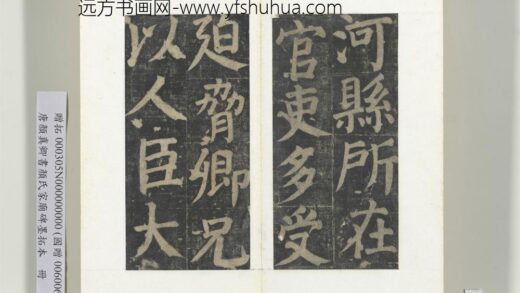 远方书画网- www.yfshuhua.com
河縣所在
官吏多受
廹脅卿兄
以人臣大
贈拓 000305N000000000 (國贈 00600
唐顏真卿書顏氏家廟碑墨拓本 冊